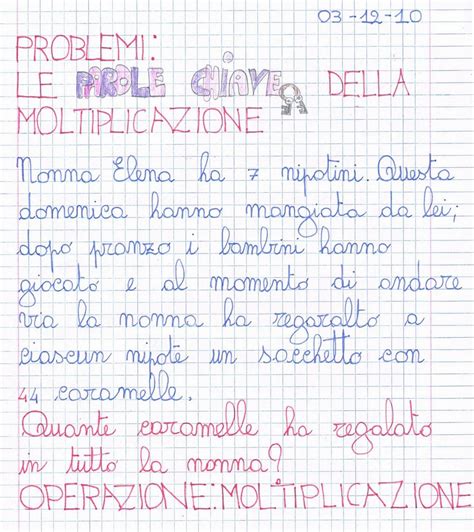 03-12-10
PROBLEMI:
LE PAROLE CHIAVE DELLA
MOLTIPLICAZIONE
Nonna Elena ha 7 nipotini. Questa
domenica hanno mangiata da lei;
dopo pranzo i bambini hanno
giocato e al momento di andare
via la nonna ha regaralto a
ciascun nipote un sacchetto con
44 caramelle.
Quante caramelle ha regalato
in tutto la nonna?
OPERAZIONE: MOLTIPLICAZIONE